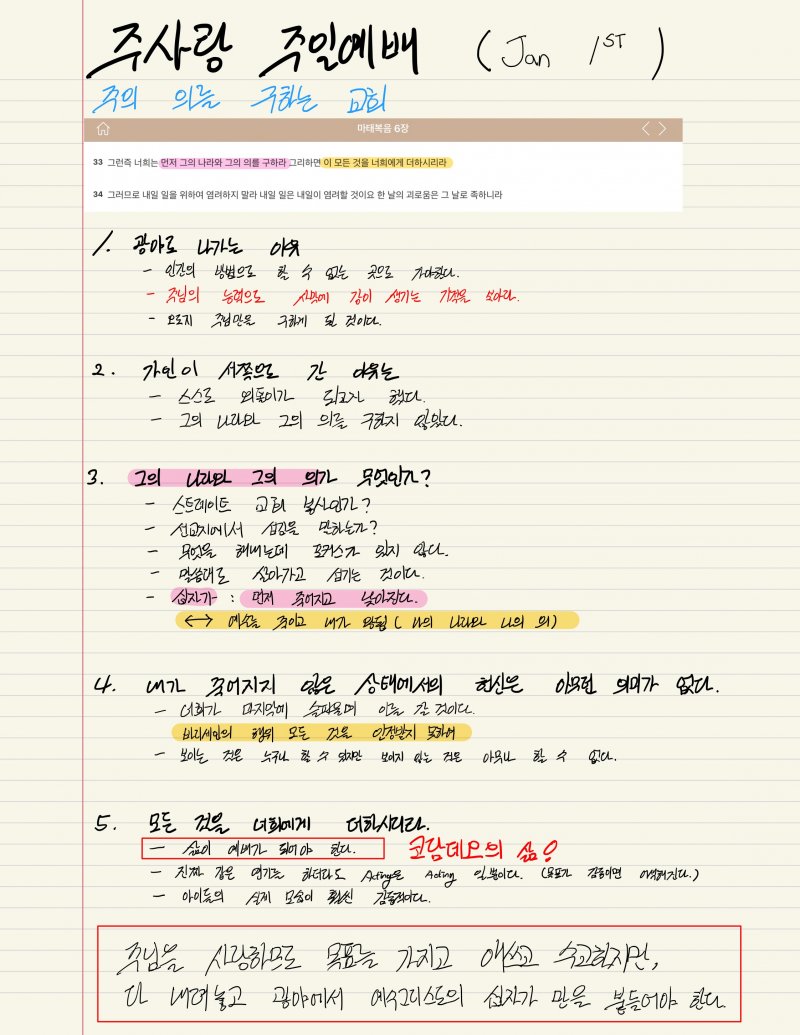 주사랑 주일예배 (Jan 1ST)
주의 의를 구하는 교회
마태복음 6장
33 그런즉 너희는 먼저 그의 나라와 그의 의를 구하라 그리하면 이 모든 것을 너희에게 더하시리라
34 그러므로 내일 일을 위하여 염려하지 말라 내일 일은 내일이 염려할 것이요 한 날의 괴로움은 그 날로 족하니라
1. 광야로 나가는 이유
- 인간의 방법으로 할 수 없는 곳으로 가야한다.
- 주님의 능력으로 사막에 강이 생기는 기적을 보아라.
- 오로지 주님만을 구하게 될 것이다.
2. 가인이 서쪽으로 간 이유는
- 스스로 외톨이가 되고자 했다.
- 그의 나라와 그의 의를 구하지 않았다.
3. 그의 나라와 그의 의가 무엇인가?
- 스트레이트 교회 봉사인가?
- 선교지에서 섬김을 말하는가?
- 무엇을 해내는데 포커스가 있지 않다.
- 말씀대로 살아가고 섬기는 것이다.
- 십자가 : 먼저 죽어지고 낮아진다.
↔ 예수를 죽이고 내가 왕됨 (나의 나라와 나의 의)
4. 내가 죽어지지 않은 상태에서의 헌신은 아무런 의미가 없다.
- 너희가 마지막에 슬피울며 이를 갈 것이다.
바리새인의 행위 모든 것을 인정받지 못하여
- 보이는 것은 누구나 할 수 있지만 보이지 않는 것은 아무나 할 수 없다.
5. 모든 것을 너희에게 더하시리라.
- 삶이 예배가 되어야 한다. 코람데오의 삶!
- 진짜 같은 연기는 하더라도 Acting은 Acting 일뿐이다. (목표가 감동이면 어색해진다.)
- 아이들의 실제 모습이 훨씬 감동적이다.
주님을 사랑하므로 목표를 가지고 애쓰고 수고하지만,
다 내려놓고 광야에서 예수그리스도의 십자가 만을 붙들어야 한다.